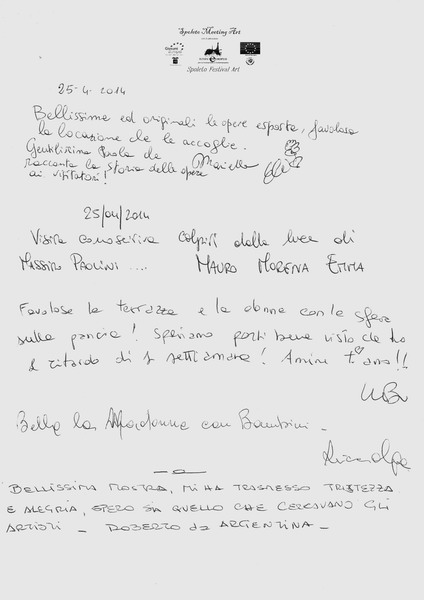 Spoleto Meeting Art
Spoleto Festival Art
25-4-2014
Bellissime ed originali le opere esposte, favolosa
la locazione che le accoglie.
Gentilissima Paola che
racconta la storia delle opere Mariella
ai visitatori!
25/04/2014
Visita conoscitiva colpiti dalla luce di
Massimo Paolini .... Mauro Morena Emma
Favolose la terrazza e la donna con le sfera
sulla pancia! Speriamo porti bene visto che ho
il ritardo di 1 settimana! Amore t'amo!!
Bella la Madonna con Bambini -
BELLISSIMA MOSTRA, MI HA TRASMESSO TRISTEZZA
E ALEGRIA, SPERO SIA QUELLO CHE CERCAVANO GLI
ARTISTI - ROBERTO da ARGENTINA -